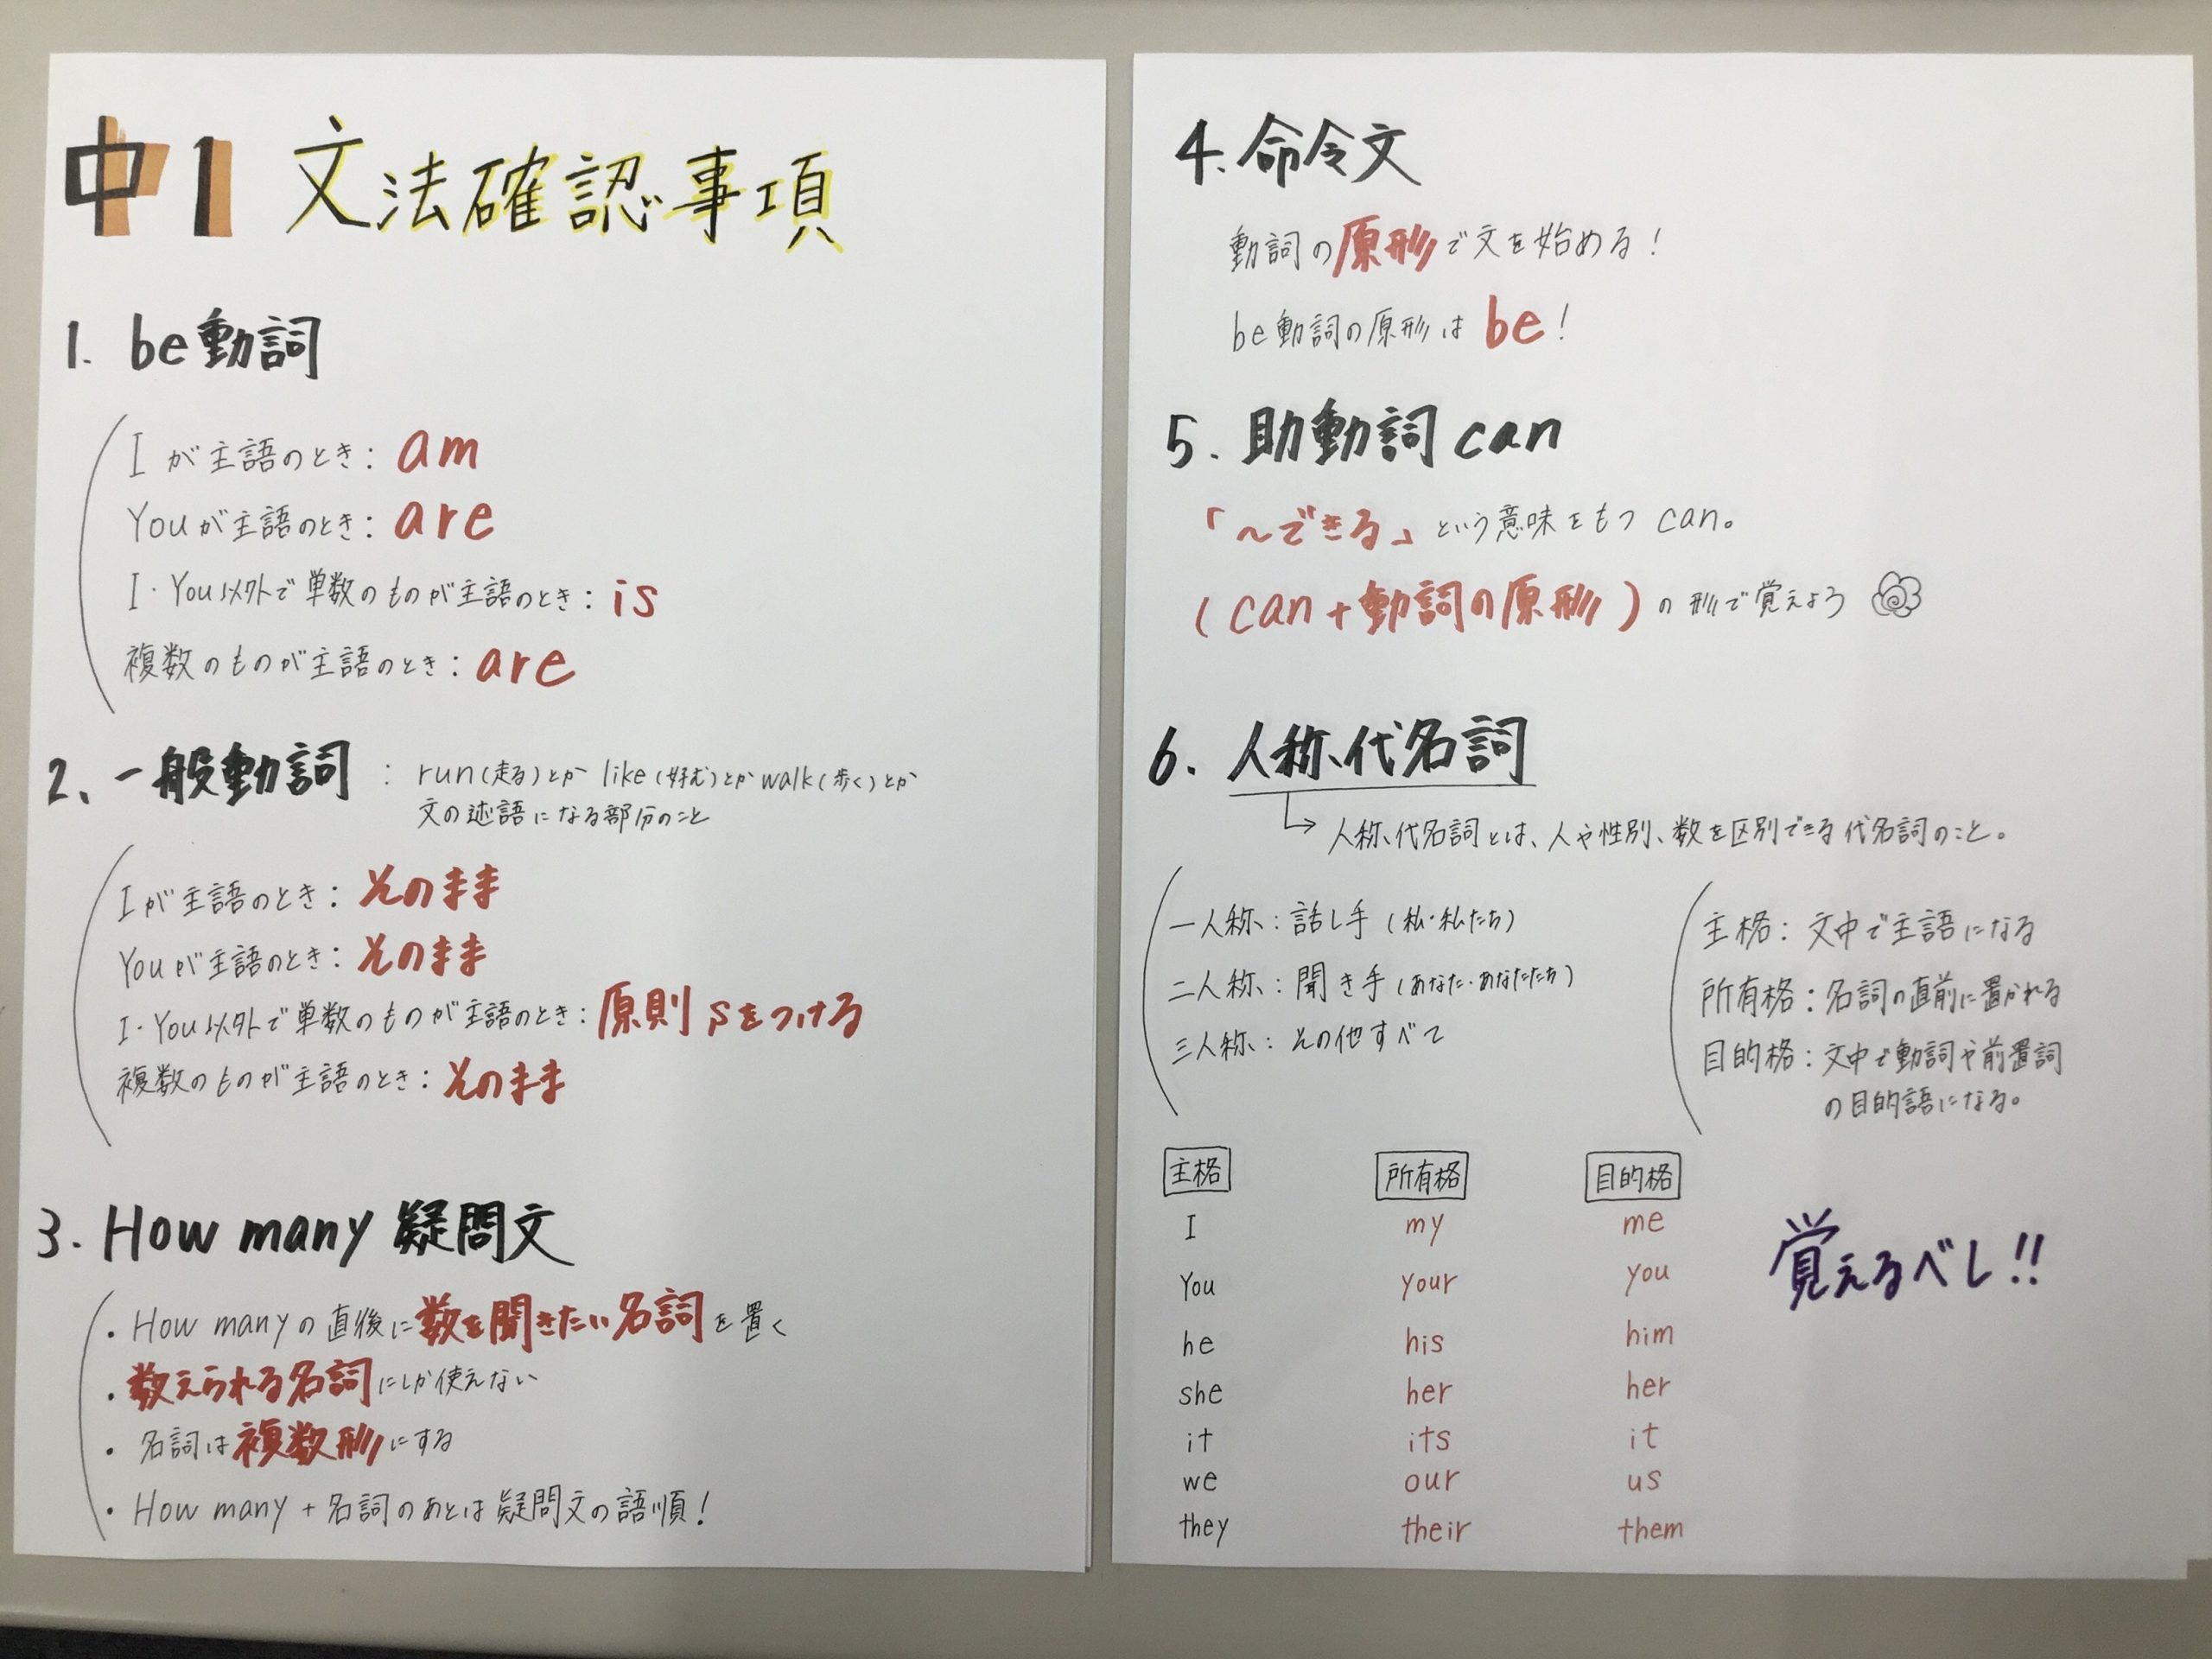 中1 文法確認事項
1. be動詞
I が主語のとき: am
Youが主語のとき: are
I・You以外で単数のものが主語のとき: is
複数のものが主語のとき: are
2. 一般動詞 : run(走る)とか like(好む)とか walk(歩く)とか
文の述語になる部分のこと
Iが主語のとき: そのまま
Youが主語のとき: そのまま
I・You以外で単数のものが主語のとき: 原則 sをつける
複数のものが主語のとき: そのまま
3. How many 疑問文
・How manyの直後に数を聞きたい名詞を置く
・数えられる名詞にしか使えない
・名詞は複数形にする
・How many + 名詞のあとは疑問文の語順!
4. 命令文
動詞の原形で文を始める!
be動詞の原形は be!
5. 助動詞 can
「～できる」という意味をもつ can。
(can+動詞の原形)の形で覚えよう
6. 人称代名詞
→ 人称代名詞とは、人や性別、数を区別できる代名詞のこと。
一人称: 話し手(私・私たち)
二人称: 聞き手(あなた・あなたたち)
三人称: その他すべて
主格: 文中で主語になる
所有格: 名詞の直前に置かれる
目的格: 文中で動詞や前置詞
の目的語になる。
主格 所有格 目的格
I my me
You your you
he his him
she her her
it its it
we our us
they their them
覚えるべし!!